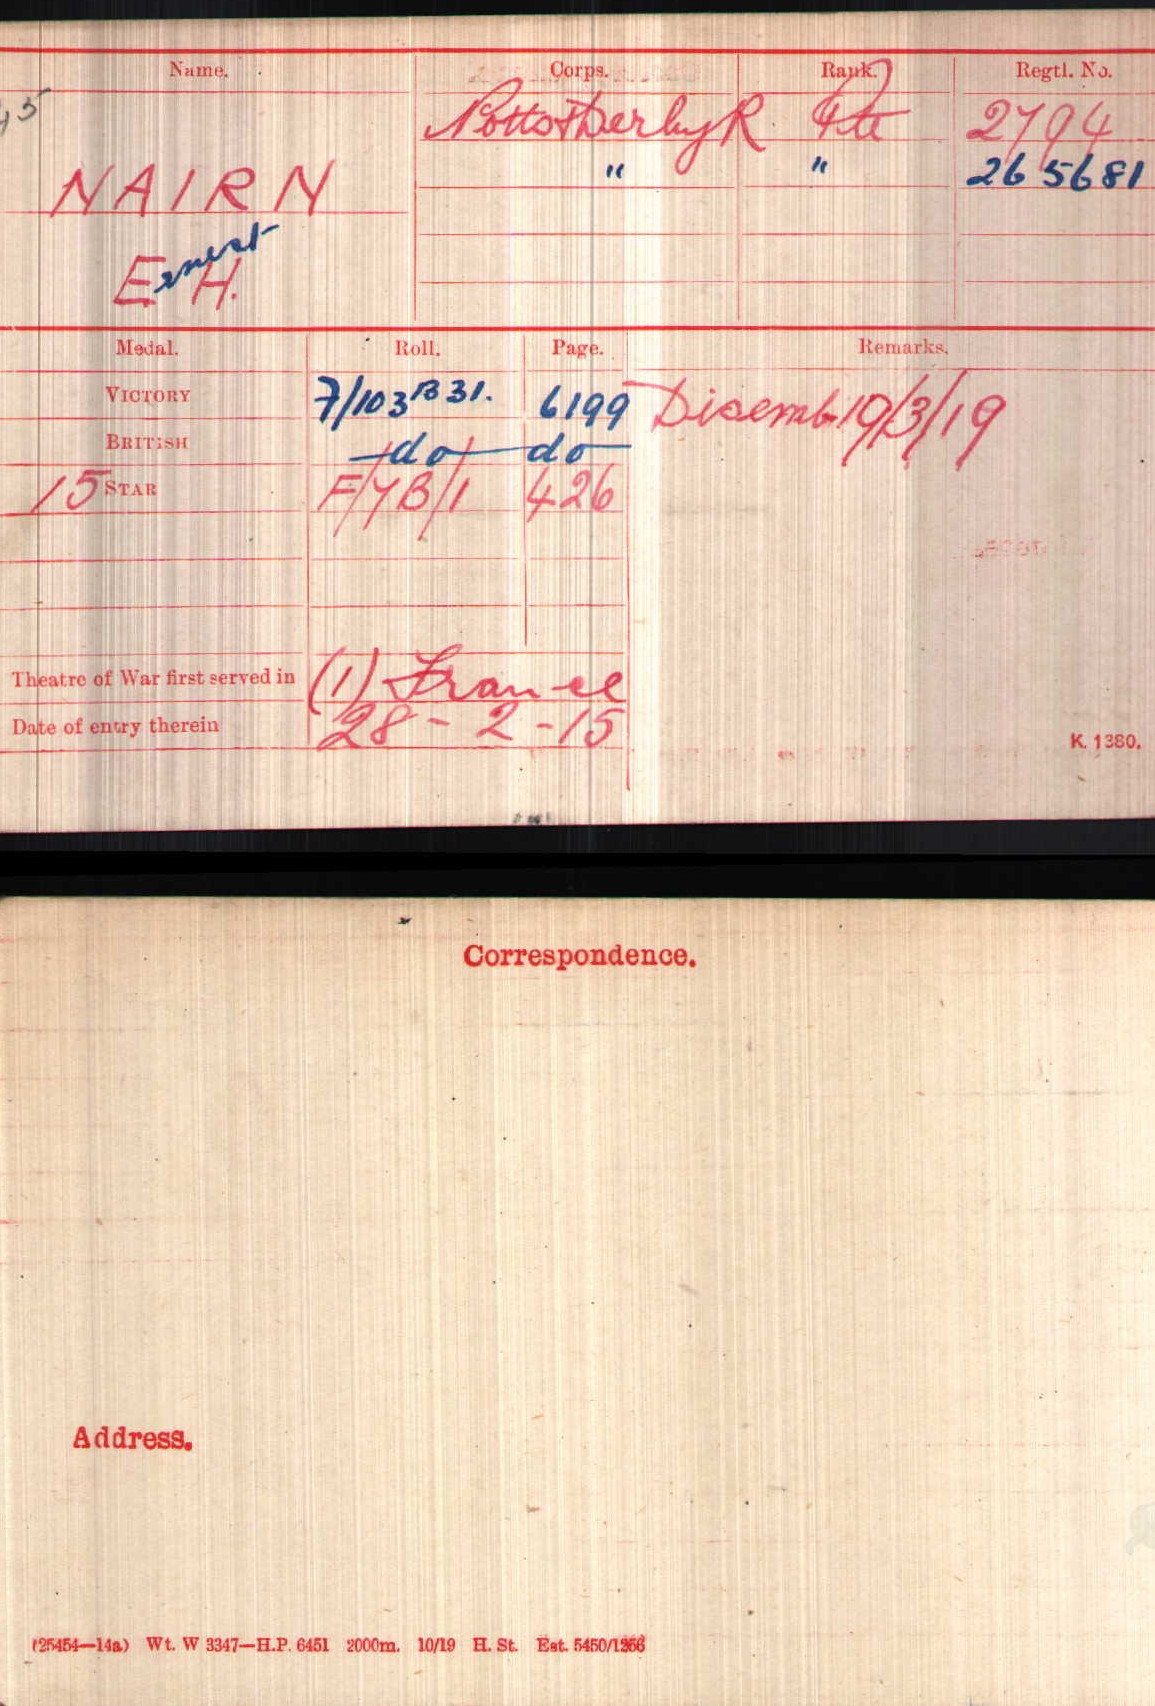 Name. Corps. Rank. Regtl. No.
Notts & Derby R. Pte 2794
" " 265681
NAIRN
Ernest H.
Medal. Roll. Page. Remarks.
VICTORY 7/103 B31. 6199 Disemb. 19/3/19
BRITISH -do- do-
15 STAR F/7B/1 426
Theatre of War first served in (1) France
Date of entry therein 28-2-15
K. 1380.
Correspondence.
Address.
(25454—14a) Wt. W 3347—H.P. 6451 2000m. 10/19 H. St. Est. 5450/1266